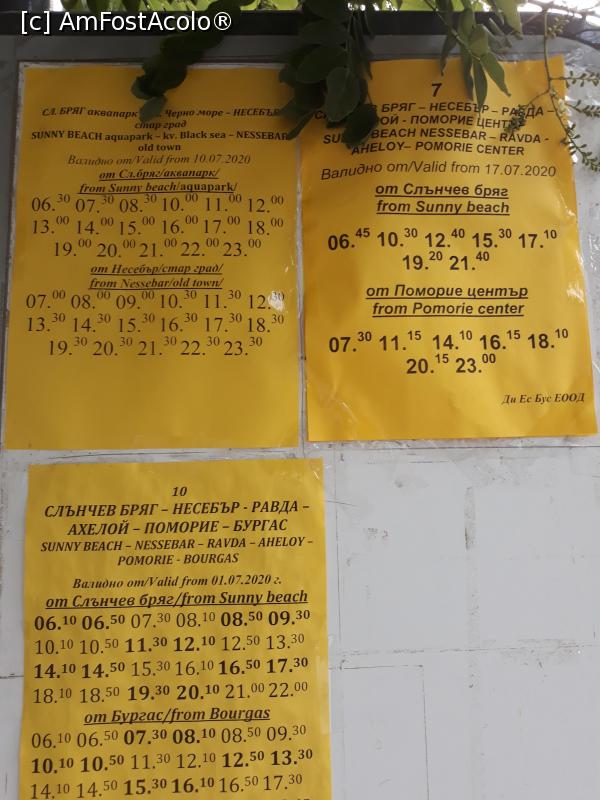 [c] AmFostAcolo®
СЛ. БРЯГ аквапарк Черно море – НЕСЕБЪР
стар град
SUNNY BEACH aquapark – kv. Black sea – NESSEBAR
old town
Валидно от/Valid from 10.07.2020
от Сл.бряг/аквапарк/
from Sunny beach/aquapark/
06.30 07.30 08.30 10.00 11.00 12.00
13.00 14.00 15.00 16.00 17.00 18.00
19.00 20.00 21.00 22.00 23.00
от Несебър/стар град/
from Nessebar/old town/
07.00 08.00 09.00 10.30 11.30 12.30
13.30 14.30 15.30 16.30 17.30 18.30
19.30 20.30 21.30 22.30 23.30
7
БРЯГ – НЕСЕБЪР – РАВДА –
ПОМОРИЕ ЦЕНТЪР
SUNNY BEACH NESSEBAR – RAVDA -
AHELOY– POMORIE CENTER
Валидно от/Valid from 17.07.2020
от Слънчев бряг
from Sunny beach
06.45 10.30 12.40 15.30 17.10
19.20 21.40
от Поморие център
from Pomorie center
07.30 11.15 14.10 16.15 18.10
20.15 23.00
Ди Ес Бус ЕООД
10
СЛЪНЧЕВ БРЯГ – НЕСЕБЪР - РАВДА –
АХЕЛОЙ – ПОМОРИЕ – БУРГАС
SUNNY BEACH – NESSEBAR – RAVDA – AHELOY –
POMORIE - BOURGAS
Валидно от/Valid from 01.07.2020 г.
от Слънчев бряг/from Sunny beach
06.10 06.50 07.30 08.10 08.50 09.30
10.10 10.50 11.30 12.10 12.50 13.30
14.10 14.50 15.30 16.10 16.50 17.30
18.10 18.50 19.30 20.10 21.00 22.00
от Бургас/from Bourgas
06.10 06.50 07.30 08.10 08.50 09.30
10.10 10.50 11.30 12.10 12.50 13.30
14.10 14.50 15.30 16.10 16.50 17.30